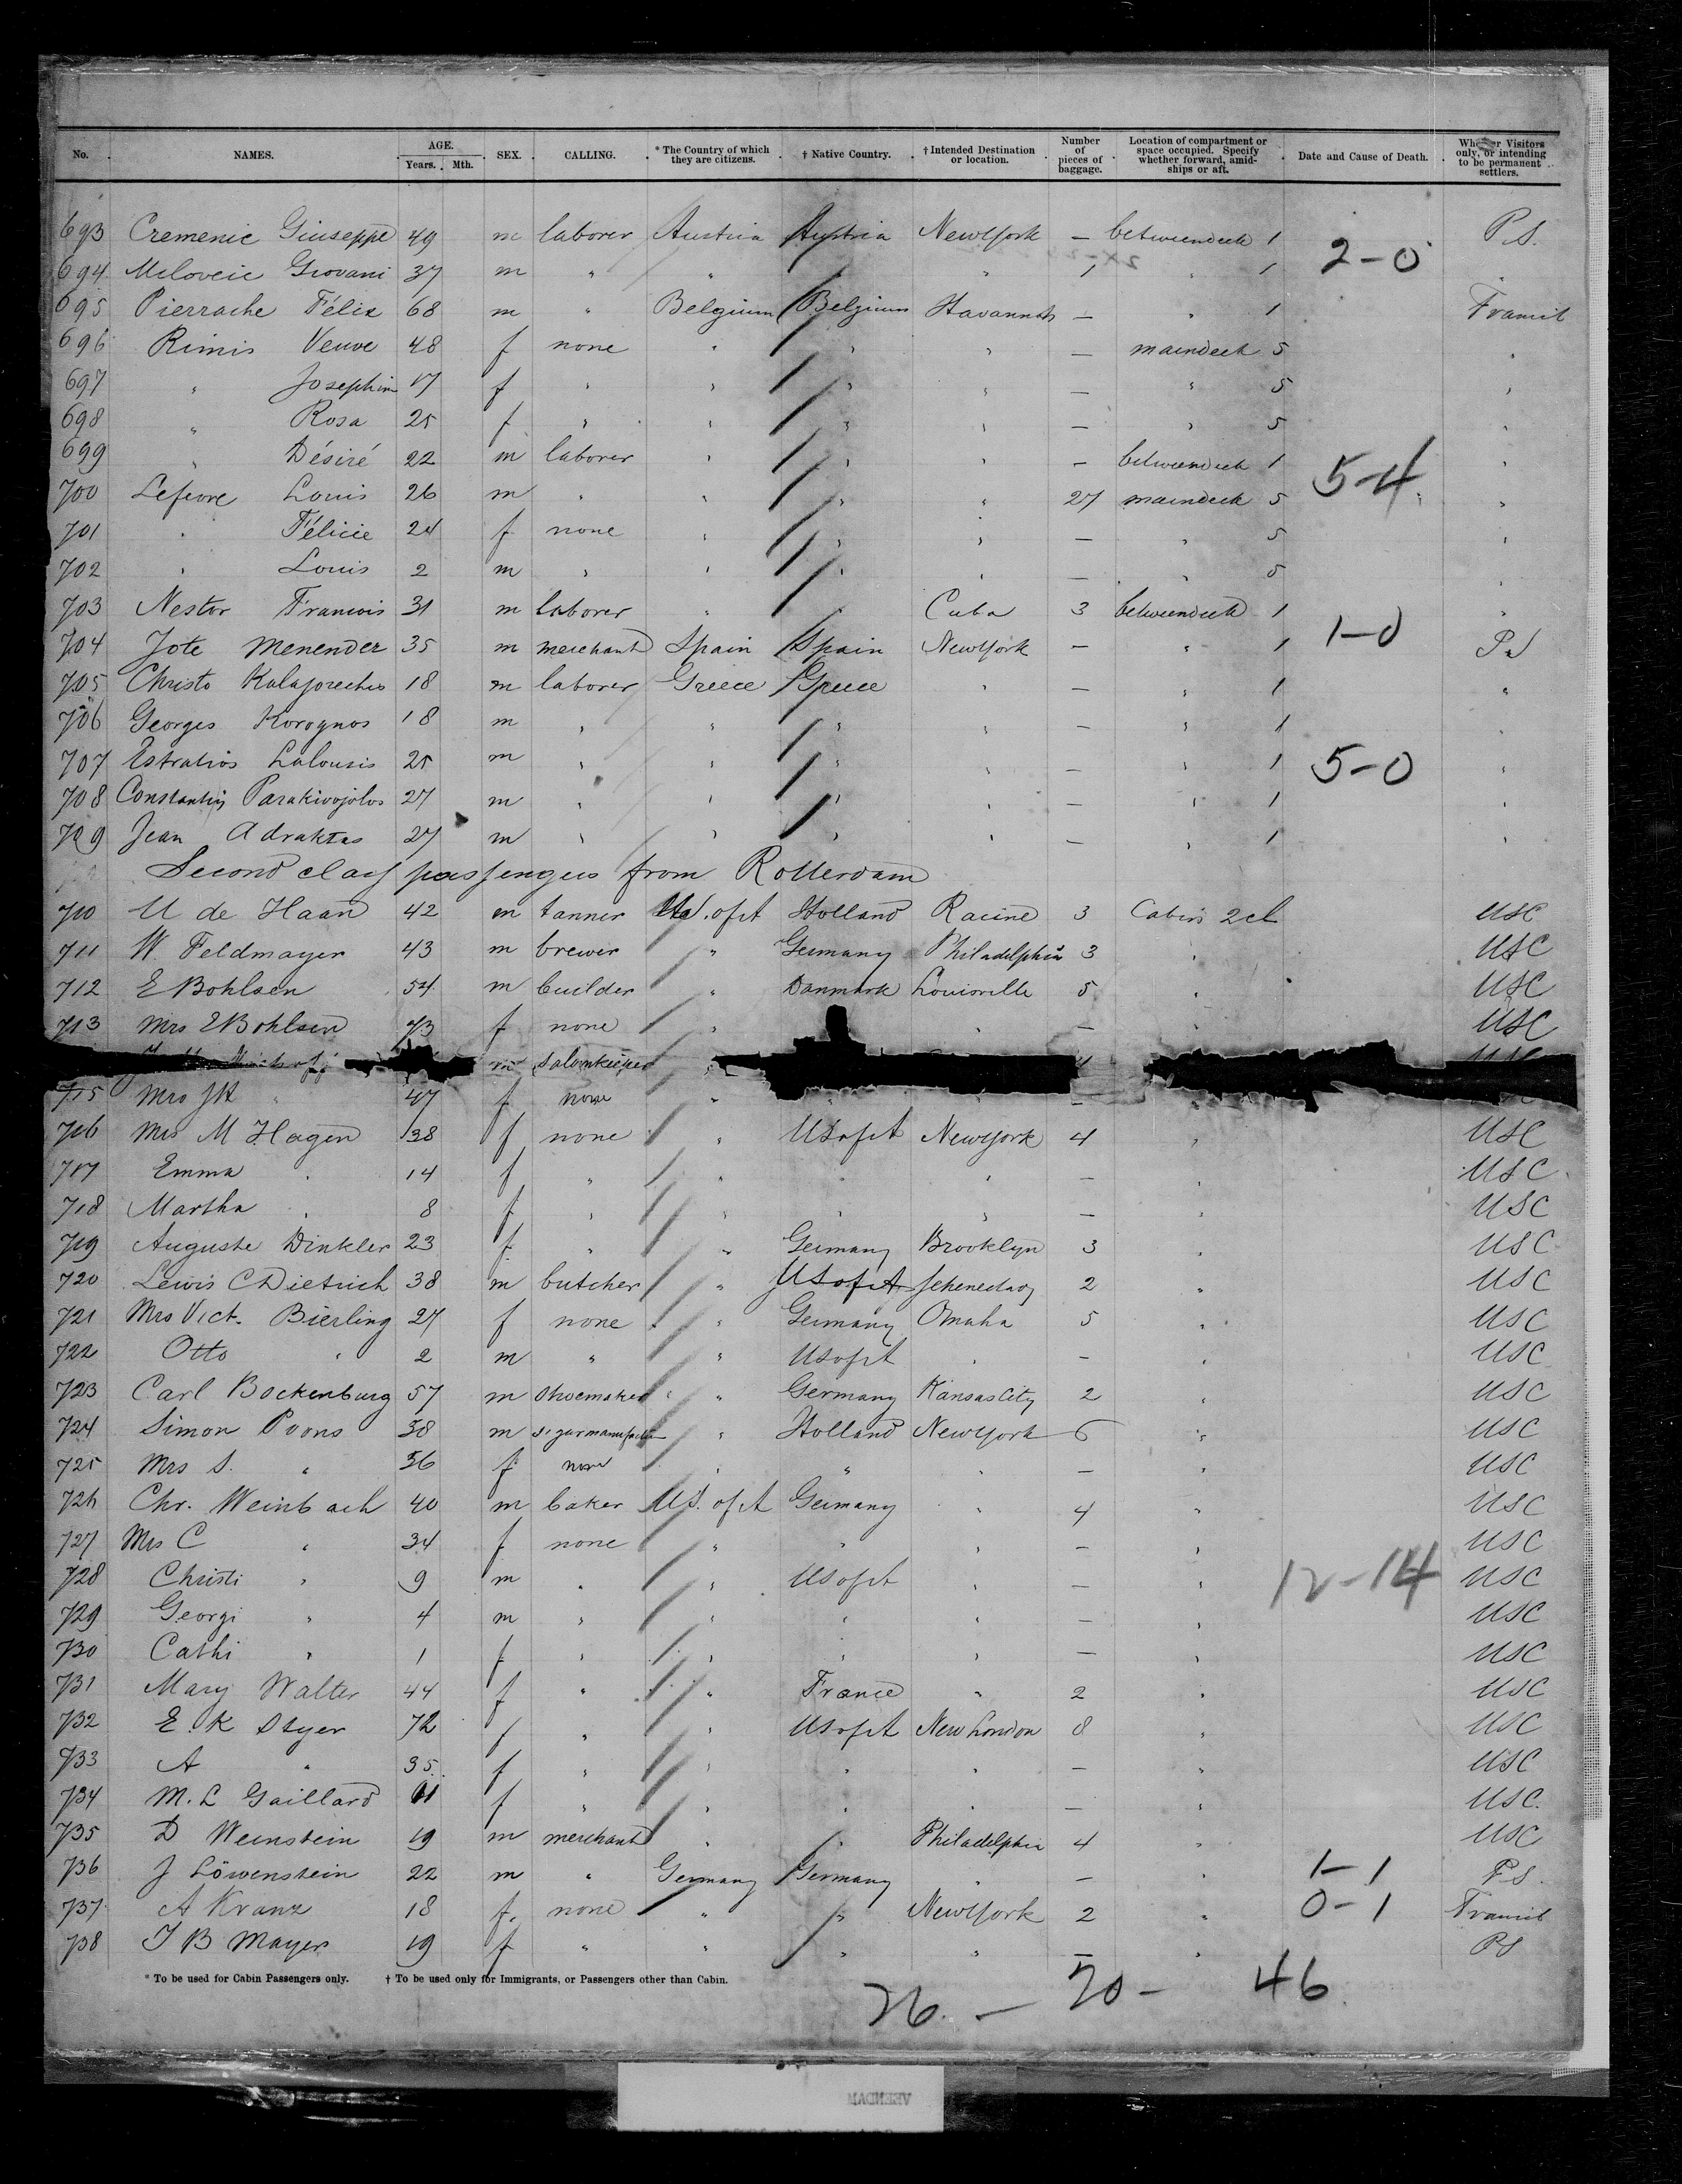 No. NAMES. AGE. Years. Mth. SEX. CALLING. * The Country of which they are citizens. † Native Country. † Intended Destination or location. Number of pieces of baggage. Location of compartment or space occupied. Specify whether forward, amidships or aft. Date and Cause of Death. Whether Visitors only, or intending to be permanent settlers.
693 Cremenic Giuseppe 49 m laborer Austria Austria NewYork — betweendeck 1 P.S.
694 Miloveic Giovani 37 m " " " " 1 " 1 2-0 "
695 Pierrache Félix 68 m " Belgium Belgium Havannah — " 1 Transit
696 Rimis Veuve 48 f none " " " — maindeck 5 "
697 " Josephin 17 f " " " " — " 5 "
698 " Rosa 25 f " " " " — " 5 "
699 " Désiré 22 m laborer " " " — betweendeck 1 "
700 Lefevre Louis 26 m " " " " 27 maindeck 5 5-4 "
701 " Félicie 24 f none " " " — " 5 "
702 " Louis 2 m " " " " — " 5 "
703 Nestor Francois 31 m laborer " " Cuba 3 betweendeck 1 "
704 Jote Menender 35 m merchant Spain Spain NewYork — " 1 1-0 PS
705 Christo 18 m laborer Greece Greece " — " 1 "
706 Georges Korognos 18 m " " " " — " 1 "
707 Estratios Lalousis 25 m " " " " — " 1 5-0 "
708 Constantin 27 m " " " " — " 1 "
709 Jean Adraktas 27 m " " " " — " 1 "
Second class passengers from Rotterdam
710 U de Haan 42 m tanner U.S. of A Holland Racine 3 Cabin 2cl USC
711 W. Feldmayer 43 m brewer " Germany Philadelphia 3 " USC
712 E Bohlsen 54 m builder " Danmark Louisville 5 " USC
713 Mrs E Bohlsen 73 f none " " — " USC
m salonkeeper " 4 USC
715 Mrs JH " 47 f none " —
716 Mrs M Hagen 38 f none " USofA NewYork 4 " USC
717 Emma " 14 f " " " " — " USC
718 Martha " 8 f " " " " — " USC
719 Auguste Dinkler 23 f " " Germany Brooklyn 3 " USC
720 Lewis C Dietrich 38 m butcher " USofA 2 " USC
721 Mrs Vict. Bierling 27 f none " Germany Omaha 5 " USC
722 Otto " 2 m " " USofA " — " USC
723 Carl Bockenburg 57 m shoemaker " Germany KansasCity 2 " USC
724 Simon Poons 38 m " Holland NewYork 6 " USC
725 Mrs S. " 36 f none " " " — " USC
726 Chr. Weinbach 40 m baker US. of A Germany " 4 " USC
727 Mrs C " 34 f none " " " — " USC
728 Christi " 9 m " " USofA " — " 12-14 USC
729 Georgi " 4 m " " " " — " USC
730 Cathi " 1 f " " " " — " USC
731 Mary Walter 44 f " " France " 2 " USC
732 E. K Styer 72 f " " USofA New London 8 " USC
733 A " 35 f " " " " — " USC
734 M. L Gaillard 61 f " " " " — " USC
735 D Weinstein 19 m merchant " " Philadelphia 4 " USC
736 J Löwenstein 22 m " Germany Germany " — " 1-1 PS.
737 A Kranz 18 f. none " " NewYork 2 " 0-1 Transit
738 J B Mayer 19 f " " " " — " PS
* To be used for Cabin Passengers only. † To be used only for Immigrants, or Passengers other than Cabin.
26. — 20 - 46